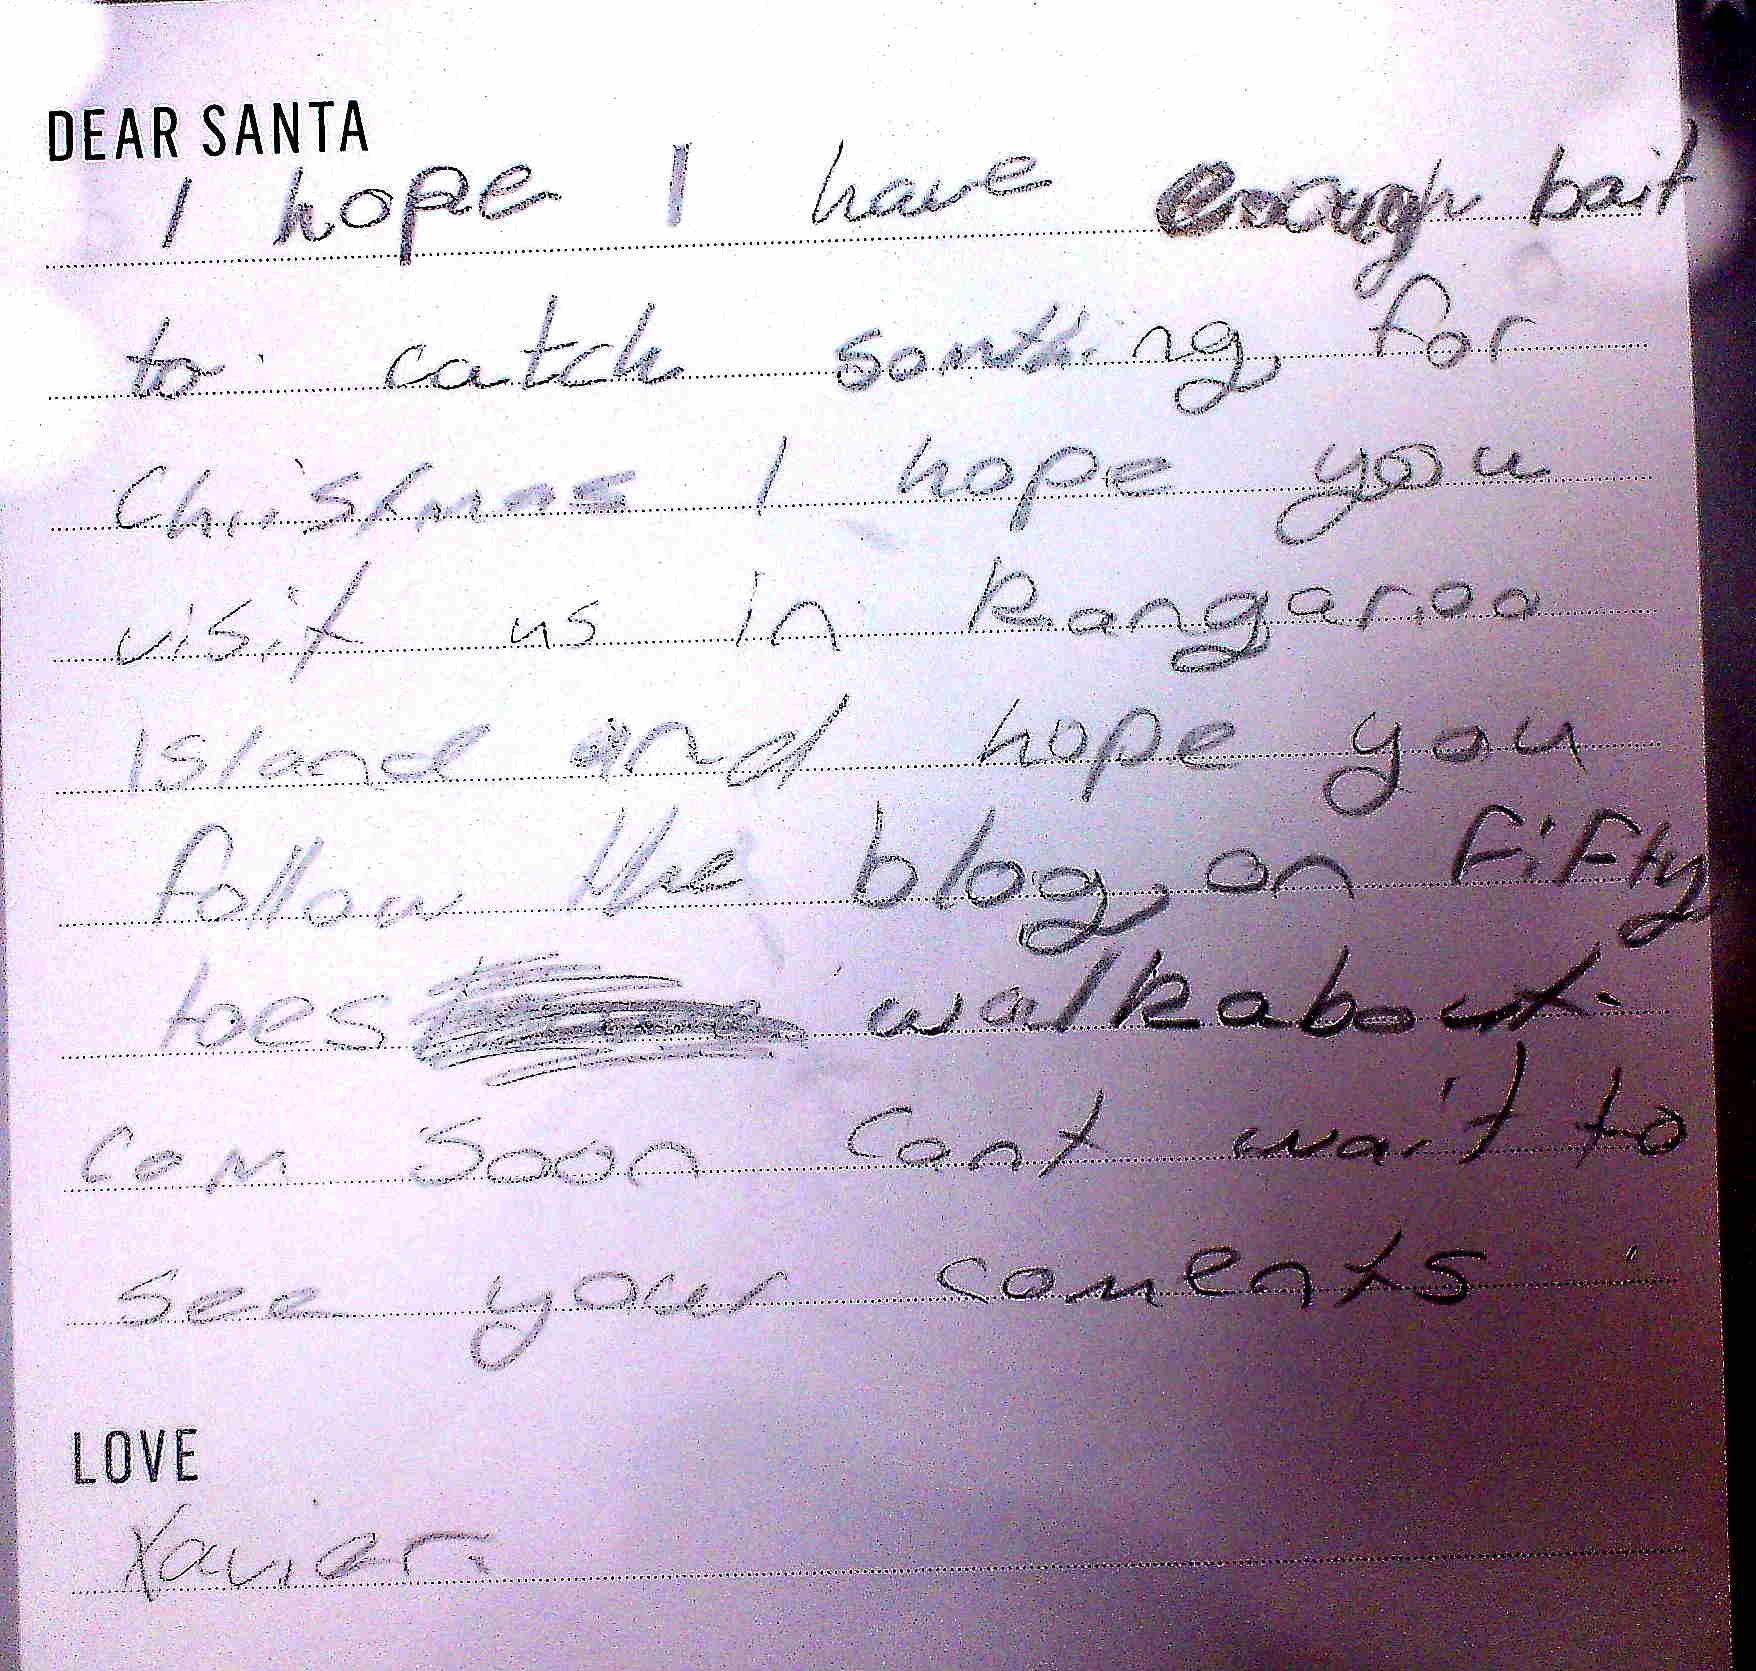 DEAR SANTA
I hope I have enough bait
to catch somthing for
Christmas I hope you
visit us in Kangaroo
Island and hope you
follow the blog on fifty
toes walkabout.
com soon cant wait to
see your coments
LOVE
Xavier.